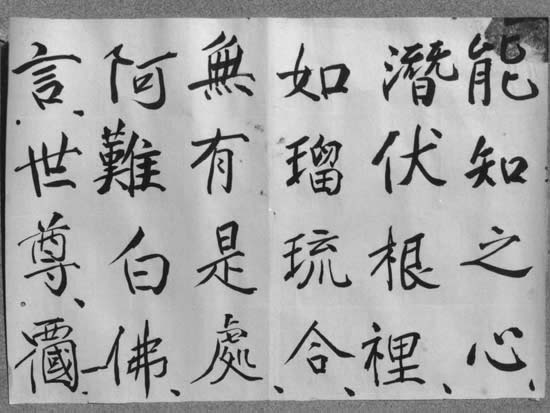 能知之心、
潛伏根裡、
如瑠琉合、
無有是處、
阿難白佛、
言、世尊、